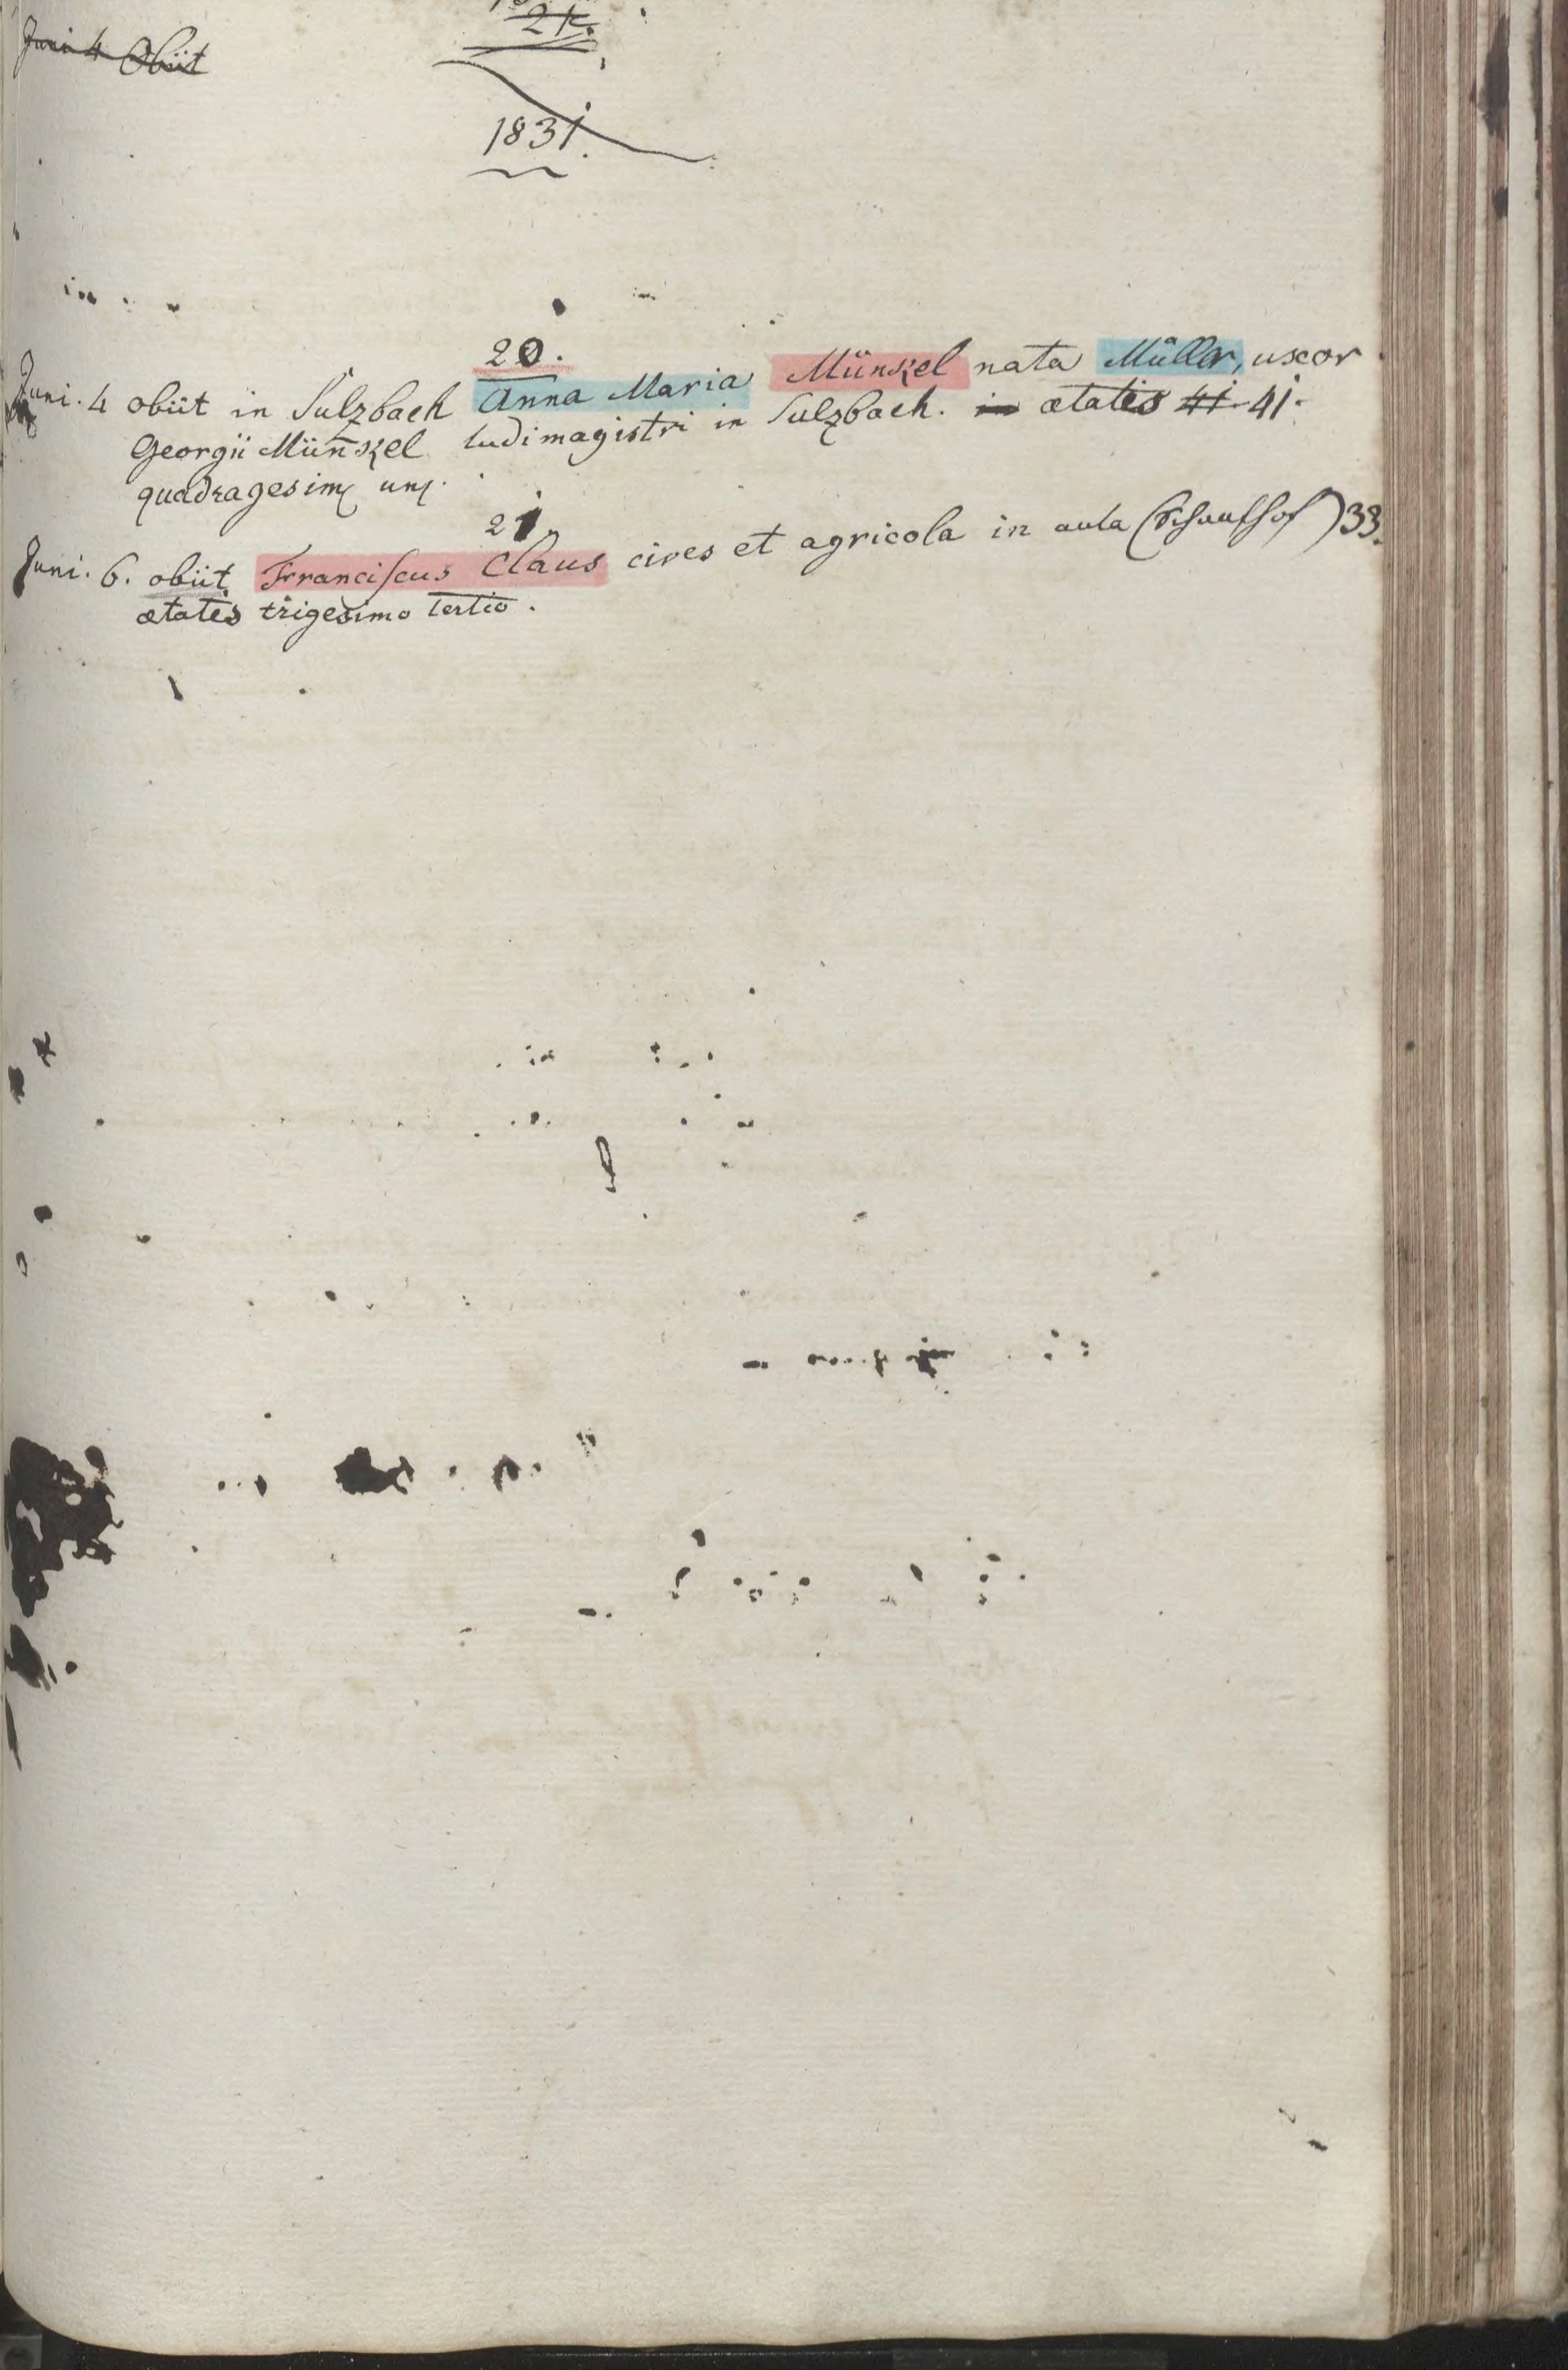 Juni 4 Obiit
2k.
1831.
20.
Juni. 4 obiit in Sulzbach Anna Maria Münkel nata Müller, uxor
Georgii Münkel ludimagistri in Sulzbach. in ætatis 41 41.
quadragesim un
21.
Juni. 6. obiit Franciscus Claus cives et agricola in aula (Schaafhof) 33.
ætatis trigesimo tertio.